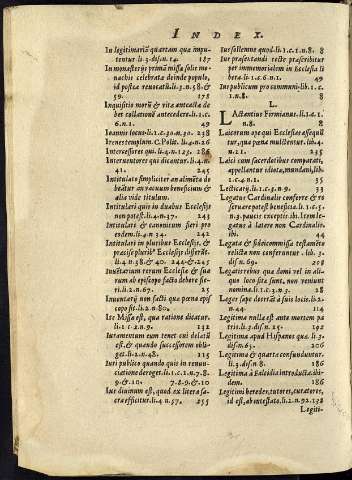 INDEX.
In legitimariā quartam quæ impu-
tentur li. 3. dif. n. 14. 187
In monasterijs primā missa solio mo-
nachis celebrata deinde populo,
id post ea reuocatū li. 3. n. 58. &
59. 178
Inquisitio morū & vita antcacta de
ber collationi antecedere. li. 1. c.
6. n. 1. 49
Ioannis locus. li. 1. c. 30. n. 30. 238
Irenes templum. C. Polit. li. 4. n. 26
Intercessores qui. li. 4. n. 123. 286
Interuentores qui dicantur. li. 4. n.
41. 245
Intitulato simpliciter an alimēta de
beātur an vacuum beneficium &
alia vide titulum.
Intitulari quis in duabus Ecclesijs
non potest. li. 4. n. 37. 243
Intitulatū & canonicum fieri pro
eodem. li. 4. n. 34. 242
Intitulari in pluribus Ecclesijs, &
præcise pluribꝰ Ecclesijs differūt.
li. 4. n. 38. & 40. 244. & 245
Inuētarium rerum Ecclesiæ & sua
rum ab episcopo facto debere fie-
ri. li. 2. n. 67. 25
Inuentarij non facti quæ pœna epis
copo sit. li. 2. n. 80.
Ite Missa est, qua ratione dicatur.
li. 1 c. 2. n. 9. 132
Iuramentum cum tenet cui delatū
est, & quando successorem obli-
get. li. 2. n. 48. 215
Iuri publico quando quis in renun-
ciatione deroget. li. 1. c. 1. n. 7. 8.
9. & 10. 7. 8. 9. & 10
Ius diuinum est, quod ex litera sa-
cra efficitur. li. 4. n. 57. 255
Ius sollemne quod. li. 1. c. 1. n. 8. 8
Ius præsentandi recte præscribitur
per immemorialem in Ecclesia li
bera. li. 1. c. 6. n. 1. 49
Ius publicum pro communi. lib. 1. c.
1. n. 8. 8
L.
LActantius Formianus. li. 1. c. 1.
n. 8. 8
Laicorum ope qui Ecclesiæ assequū
tur, qua pœna mulctentur. lib. 4.
n. 21. 235
Laici cum sacerdotibus comparati,
appellantur idiotæ, mundani, lib.
1. c. 4. n. 1. 33
Lecticarij. li. 1. c. 3. n. 9. 35
Legatus Cardinalis conferre & re
seruare potest beneficia. li. 1. c. 3.
n. 9. paucis exceptis. ibi. Item le-
gatus à latere non Cardinalis.
ibi. 44
Legata & fideicommissa testamēto
relicta non conferuntur. lib. 3.
dif. n. 69. 208
Legatis rebus quæ domi vel in ali-
quo loco sitæ sunt, non veniunt
nomina. li. 1. c. 3. n. 3. 28
Leges sæpe doertāt à suis locis. li. 2.
n. 44. 114
Legitima nulla est ante mortem pa
tris. li. 3. dif. n. 25. 192
Legitima apud Hispanos quæ. li. 3.
dif. n. 65. 206
Legitima & quarta confunduntur.
li. 3. dif. n. 8. 186
Legitima à Falcidia introducta. ibi-
dem. 186
Legitimi heredes, tutores, curatores,
id est, ab intestato. li. 2. n. 92. 138
Legiti-